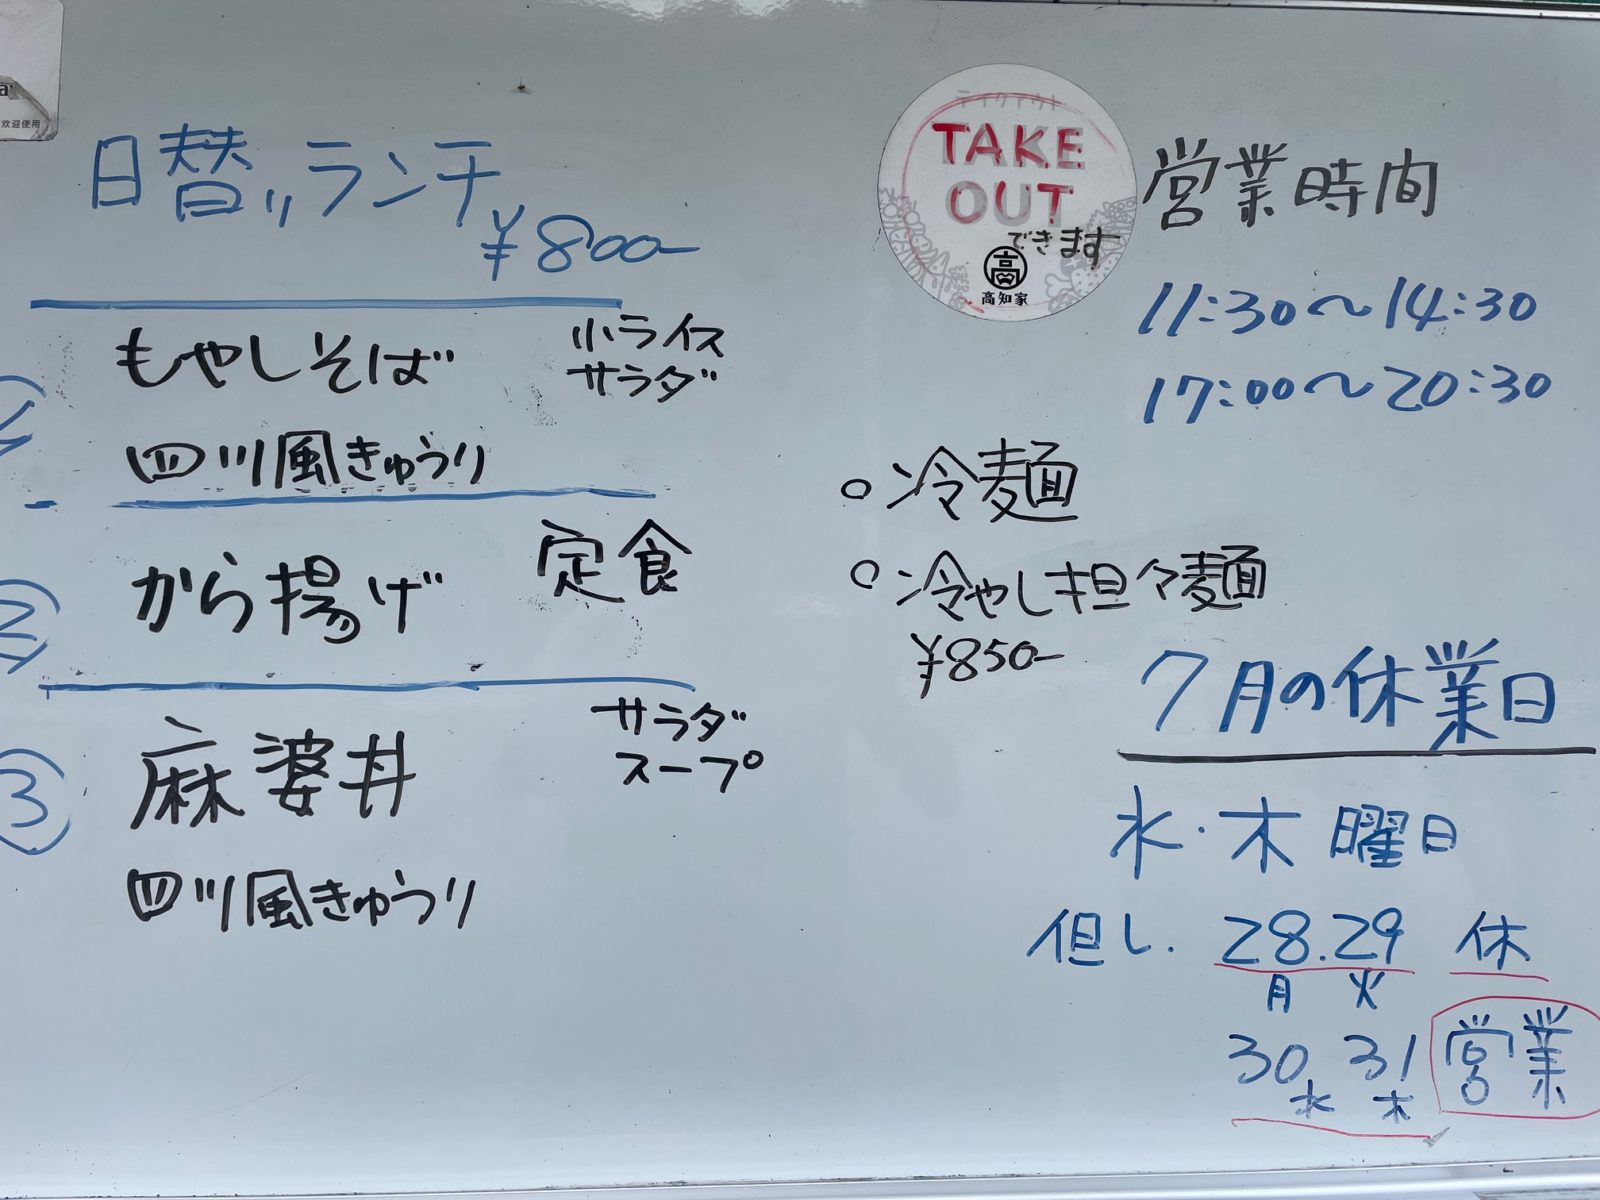 欢迎使用
日替りランチ
¥800-
① もやしそば
小ライス
サラダ
四川風きゅうり
② から揚げ 定食
③ 麻婆丼
サラダ
スープ
四川風きゅうり
テイクアウト
TAKE
OUT
できます
高
高知家
営業時間
11:30〜14:30
17:00〜20:30
○冷麺
○冷やし担々麺
¥850-
7月の休業日
水・木曜日
但し. 28.29 休
月 火
30 31 営業
水 木